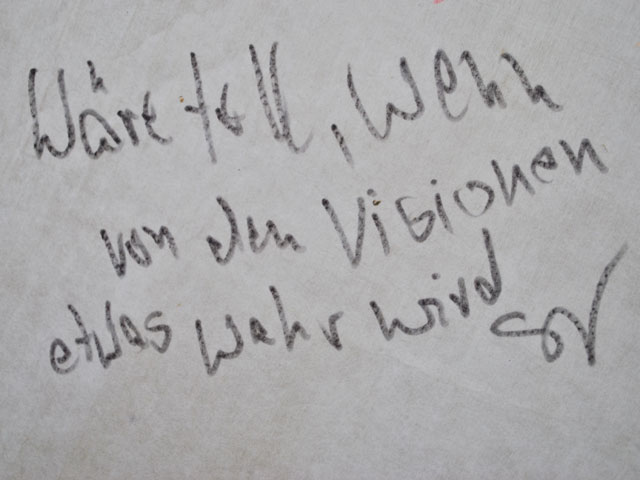 Wäre toll, wenn
von den Visionen
etwas wahr wird